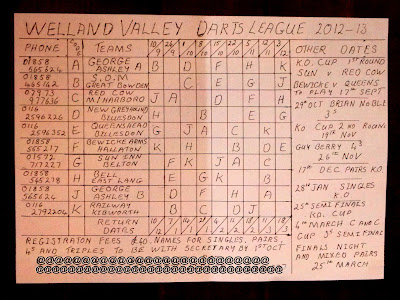 WELLAND VALLEY DARTS LEAGUE 2012-13
PHONE CODE TEAMS 10/9 24/9 1/10 8/10 15/10 22/10 5/11 12/11 3/12
01858 GEORGE
565624 A ASHLEY A B D F H K
01858 S.D.M
465142 B GREAT BOWDEN C E G J
07973 RED COW
977636 C M/HARBORO J A D F H
0116 NEW GREYHOUND
2596226 D BILLESDON H E K
0116 QUEENSHEAD
2596352 E BILLESDON G J A C K
01858 BEWICKE ARMS
555217 F HALLATON K H B D
01572 SUN INN
717227 G BELTON F K J A C
01858 BELL
545278 H EAST LANG E G K B
01858 GEORGE
565624 J ASHLEY B D F H A
0116 RAILWAY
2792204 K KIBWORTH B C D J
RETURN
DATES
REGISTRATON FEES £40. NAMES FOR SINGLES. PAIRS.
4S AND TRIPLES TO BE WITH SECRETARY BY 1ST OCT
OTHER DATES
K.O. CUP 1ST ROUND
SUN V RED COW
BEWICKE V QUEENS
PLAY 17TH SEPT
29TH OCT BRIAN NOBLE
3S
KO CUP 2ND ROUND
19TH NOV
GUY BERRY 4S
26TH NOV
17TH DEC PAIRS KO.
28TH JAN SINGLES
KO
25TH SEMI FINALS
K.O. CUP
4TH MARCH C AND C
CUP 3S SEMI FINAL
FINALS NIGHT
AND MIXED PAIRS
25TH MARCH